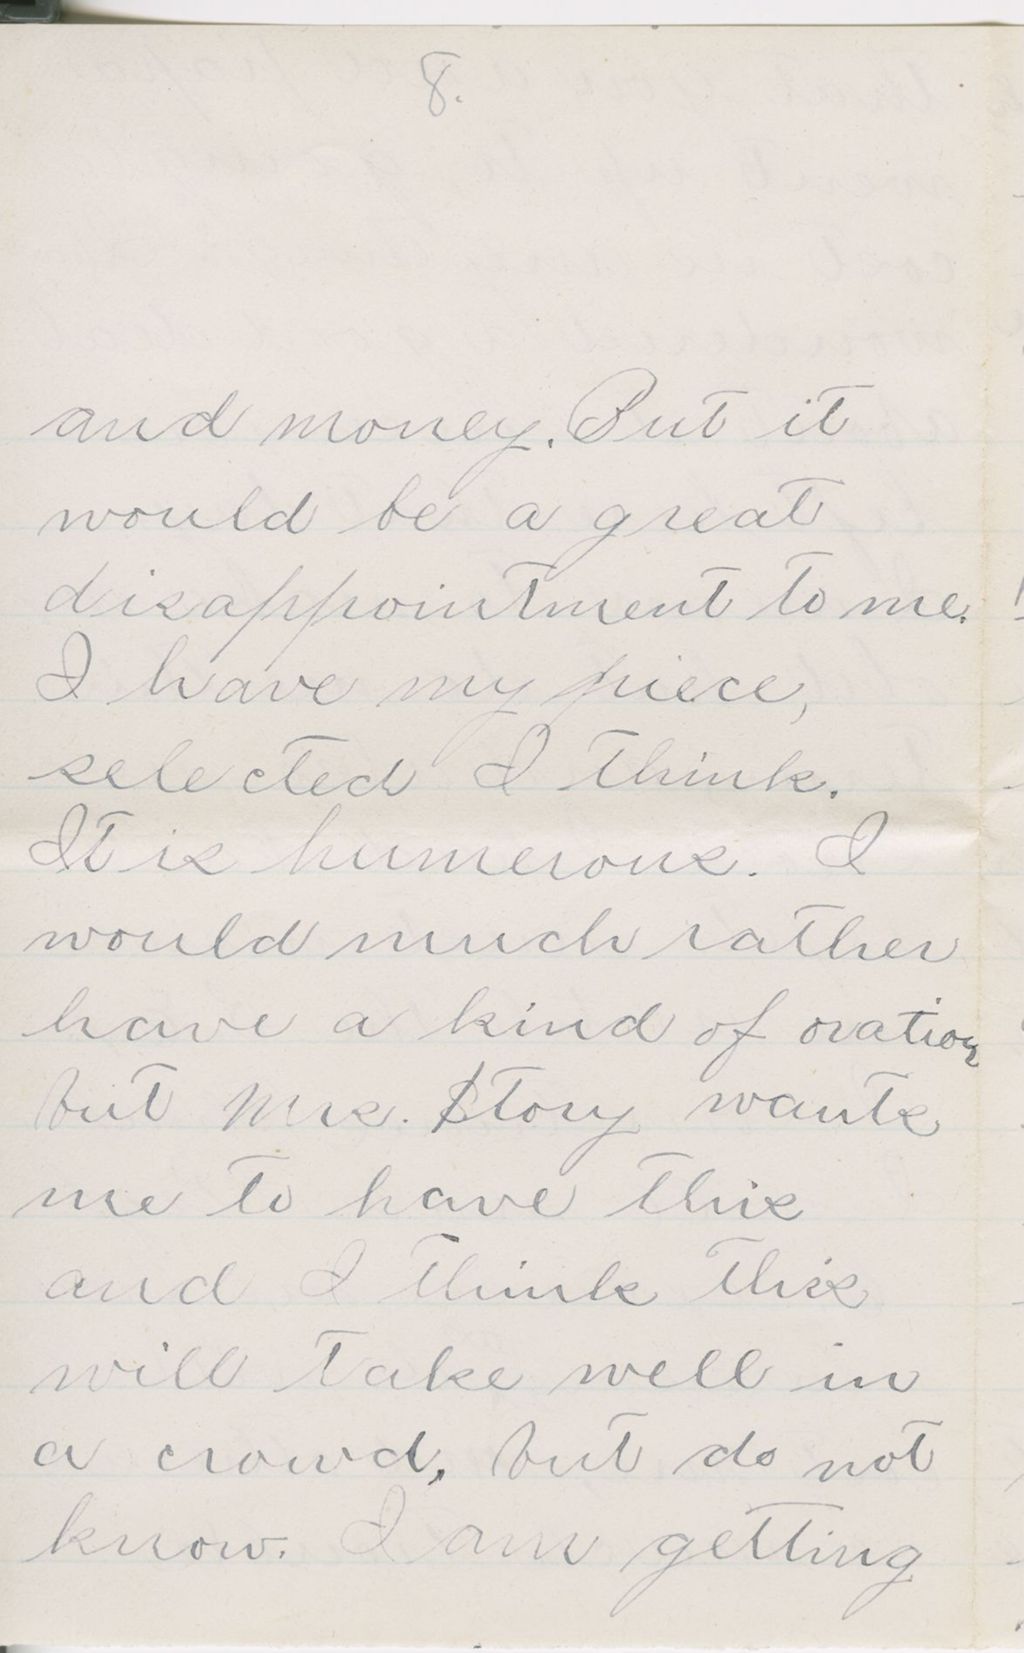 8.
and money. But it
would be a great
disappointment to me.
I have my piece,
selected I think.
It is humerous. I
would much rather
have a kind of oration
but Mrs. Story wants
me to have this
and I think this
will take well in
a crowd, but do not
know. I am getting